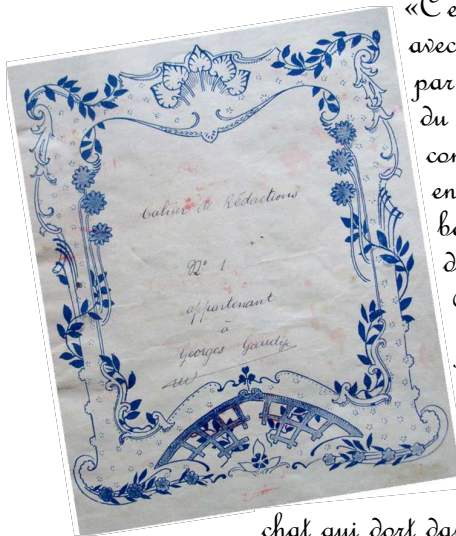 «C'e
avec
par
du
con
en
d
Cahier de Rédactions
N° 1
appartenant
à
Georges
chat qui dort da